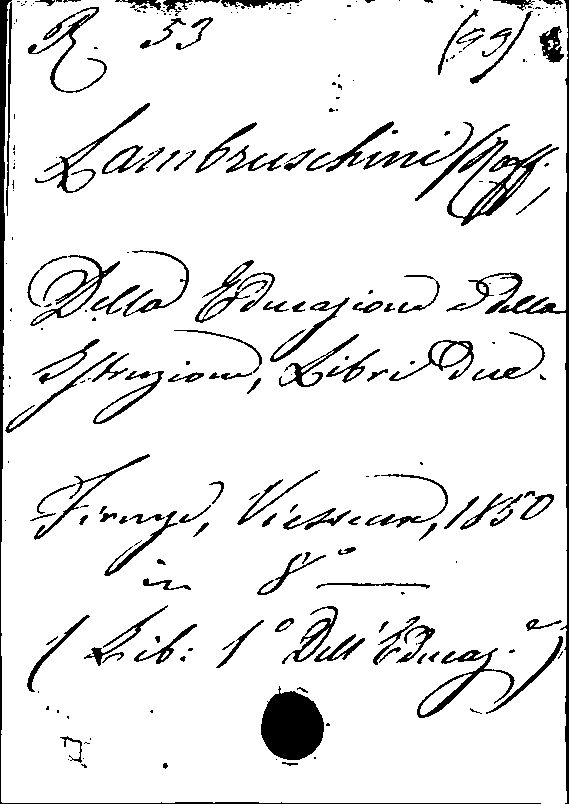 R. 53 (99)
Lambruschini Raff.,
Della Educazione e della
Istruzione, Libri Due.
Firenze, Vieusseux, 1850
in 8°
( Lib: 1° Dell'Educaz.e )